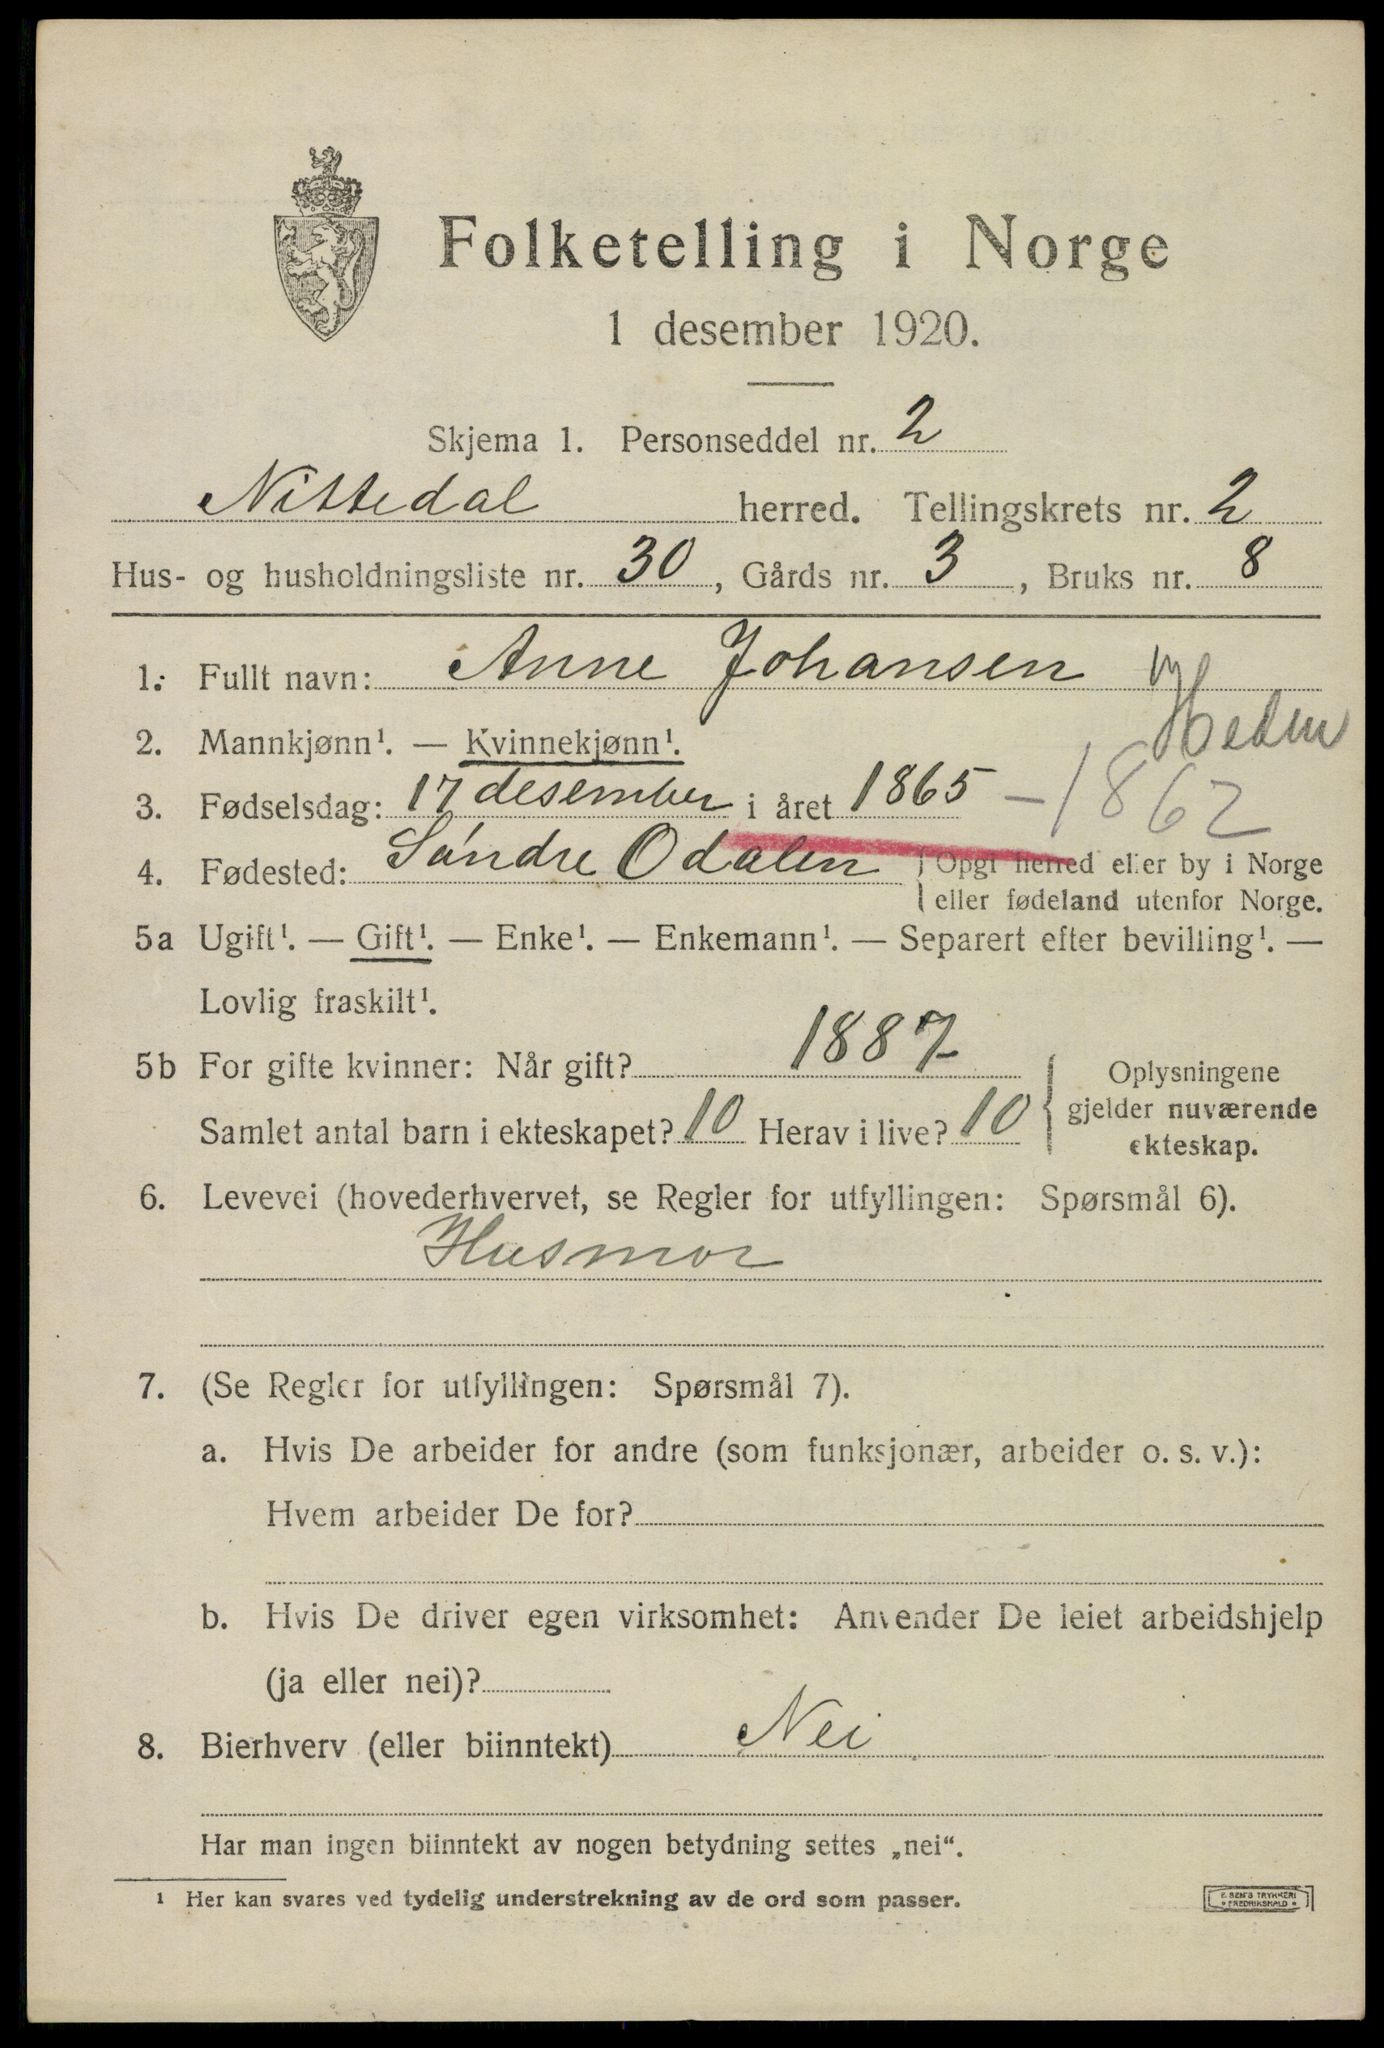 Folketelling i Norge
1 desember 1920.
Skjema 1. Personseddel nr. 2
Nittedal herred. Tellingskrets nr. 2
Hus- og husholdningsliste nr. 30, Gårds nr. 3, Bruks nr. 8
1. Fullt navn: Anne Johansen
2. Mannkjønn¹. — Kvinnekjønn¹.
3. Fødselsdag: 17 desember i året 1865 — 1862
4. Fødested: Søndre Odalen { Opgi herred eller by i Norge
eller fødeland utenfor Norge.
5a Ugift¹. — Gift¹. — Enke¹. — Enkemann¹. — Separert efter bevilling¹. —
Lovlig fraskilt¹.
5b For gifte kvinner: Når gift? 1887
Samlet antal barn i ekteskapet? 10 Herav i live? 10
Oplysningene
gjelder nuværende
ekteskap.
6. Levevei (hovederhvervet, se Regler for utfyllingen: Spørsmål 6).
Husmor
7. (Se Regler for utfyllingen: Spørsmål 7).
a. Hvis De arbeider for andre (som funksjonær, arbeider o. s. v.):
Hvem arbeider De for?
b. Hvis De driver egen virksomhet: Anvender De leiet arbeidshjelp
(ja eller nei)?
8. Bierhverv (eller biinntekt) Nei
Har man ingen biinntekt av nogen betydning settes „nei“.
¹ Her kan svares ved tydelig understrekning av de ord som passer.
E. SEM'S TRYKKERI
• FREDRIKSHALD •